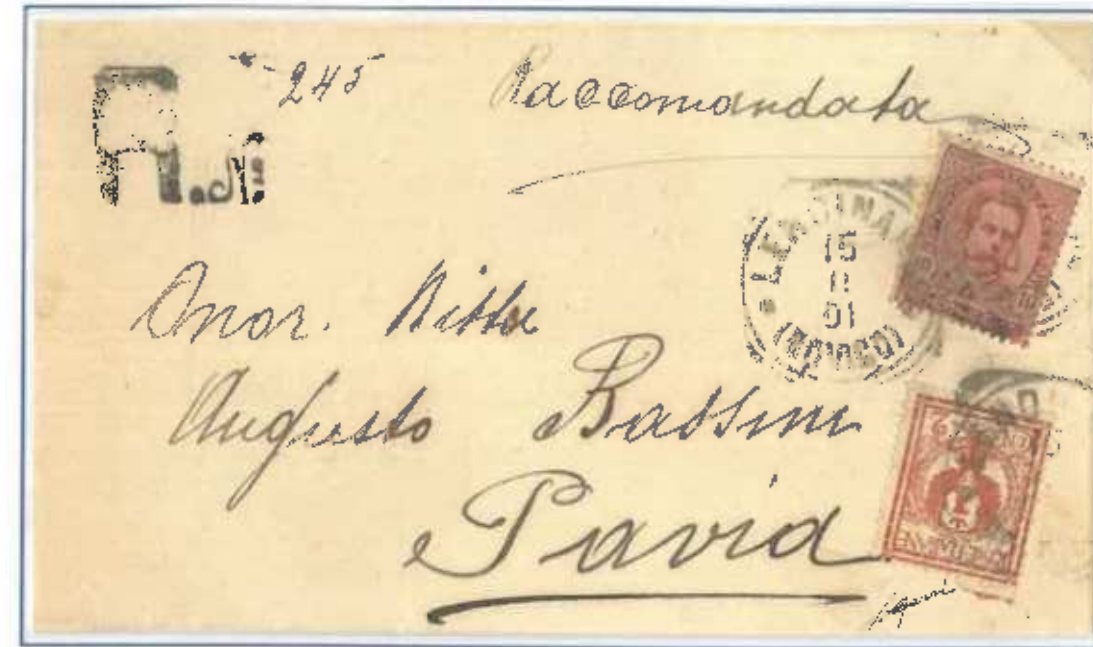 R.N: 245
Raccomandata
15
11
01
(ROVIGO)
Onor. Ditta
Augusto Bassini
Pavia